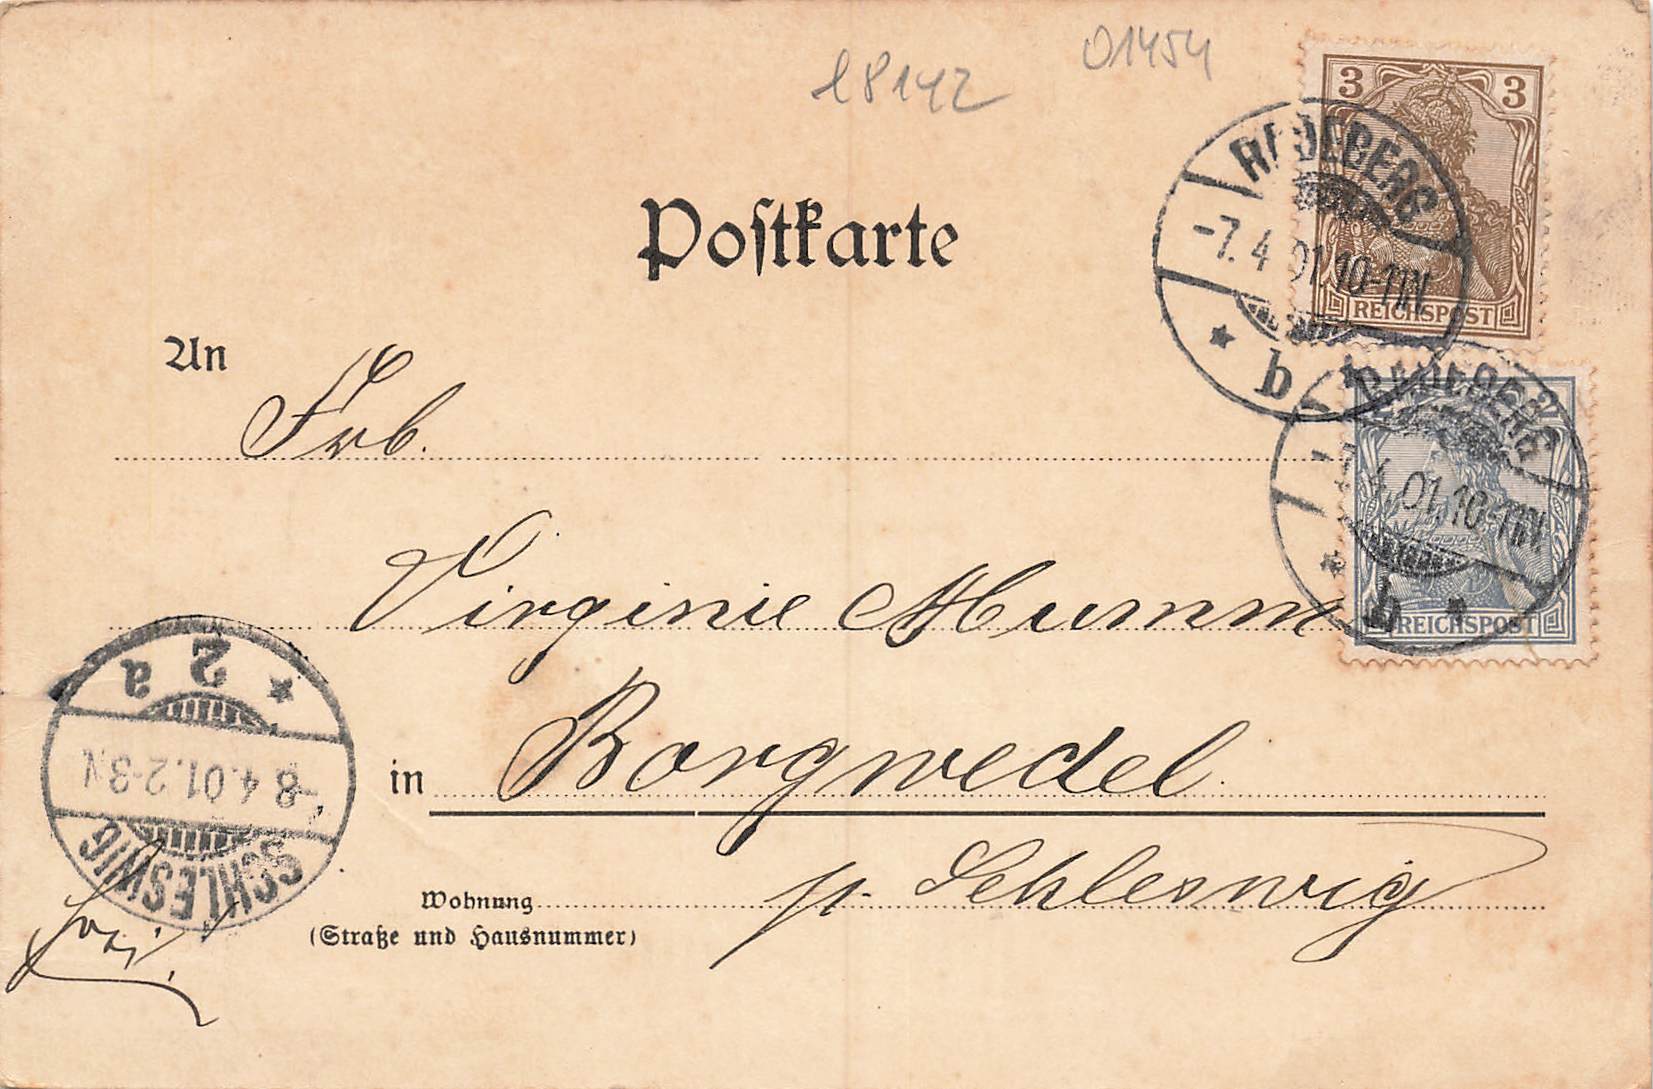 18142
01454
3 3
RADEBERG
-7.4 01.10-11N.
b
REICHSPOST
Postkarte
An Frb.
RADEBERG
-7.4.01.10-11N.
b
REICHSPOST
Virginie Mumm
2 a
-8.4.01.2-3N
SCHLESWIG
in Borgwedel.
Wohnung p. Schleswig
(Straße und Hausnummer)